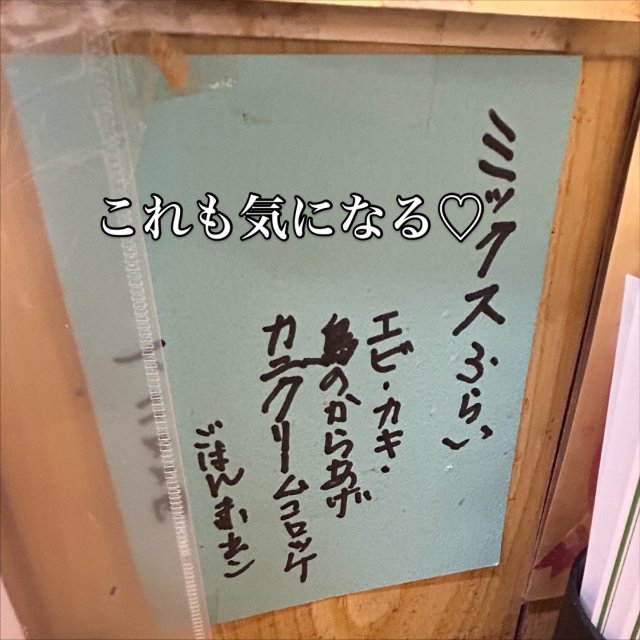 これも気になる♡
ミックスふらい
エビ・カキ・
鳥のからあげ
カニクリームコロッケ